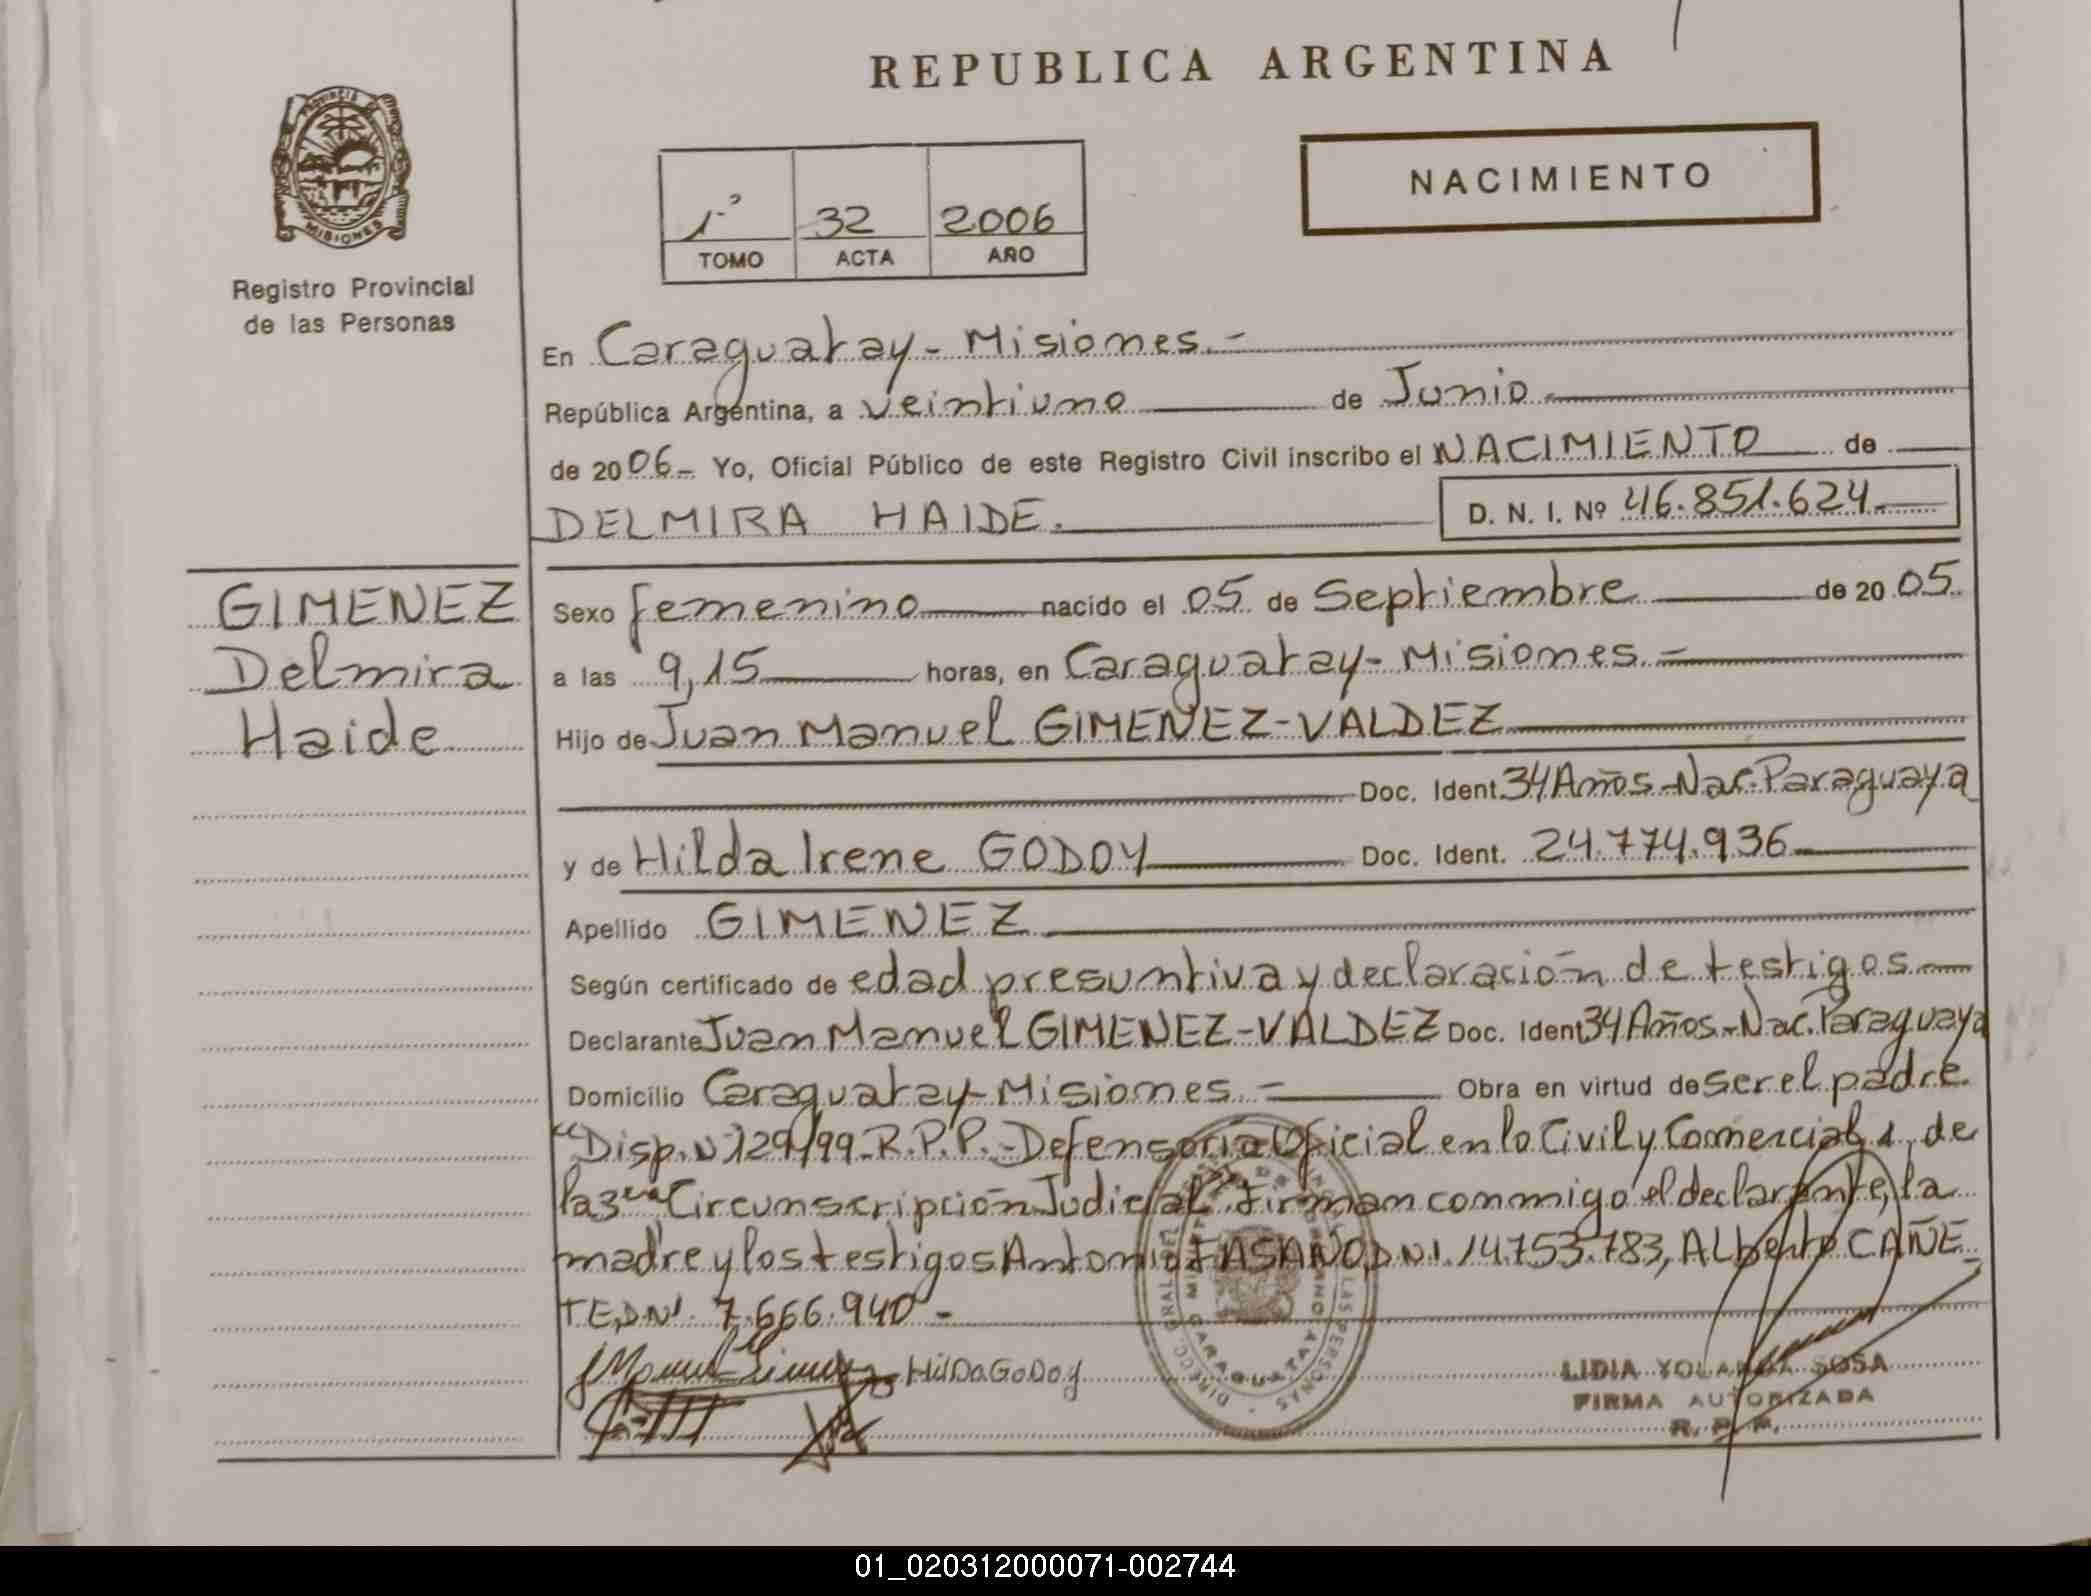 REPUBLICA ARGENTINA
PROVINCIA DE
MISIONES
Registro Provincial
de las Personas
1º 32 2006
TOMO ACTA AÑO
NACIMIENTO
En Caraguatay - Misiones.-
República Argentina, a veintiuno de Junio
de 2006- Yo, Oficial Público de este Registro Civil inscribo el NACIMIENTO de
DELMIRA HAIDE. D. N. I. Nº 46.851.624
GIMENEZ
Delmira
Haide
Sexo femenino nacido el 05 de Septiembre de 2005.
a las 9,15 horas, en Caraguatay - Misiones.-
Hijo de Juan Manuel GIMENEZ-VALDEZ
Doc. Ident. 34 Años-Nac. Paraguaya
y de Hilda Irene GODOY Doc. Ident. 24.774.936
Apellido GIMENEZ
Según certificado de edad presuntiva y declaración de testigos
Declarante Juan Manuel GIMENEZ-VALDEZ Doc. Ident 34 Años-Nac. Paraguaya
Domicilio Caraguatay-Misiones.- Obra en virtud de ser el padre.
"Disp. Nº 129/99-R.P.P.-Defensoria Oficial en lo Civil y Comercial 1, de
la 3era Circunscripción Judicial" Firman conmigo el declarante, la
madre y los testigos Antonio FASANO, D.N.I. 14.753.783, Alberto CAÑE
TE, DNI. 7.666.940 -
HilDa GoDoy
LIDIA YOLANDA SOSA
FIRMA AUTORIZADA
R. P. P.
01_020312000071-002744